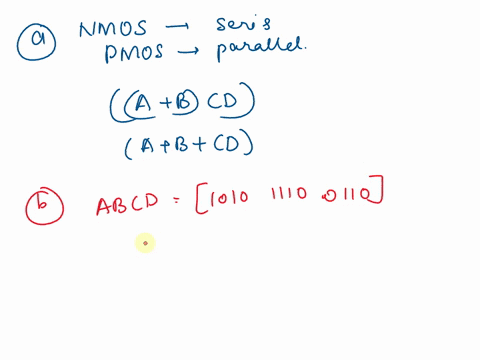 a NMOS → seris
PMOS → parallel.
((A + B) CD)
(A + B + CD)
b ABCD = [1010 1110 0110]